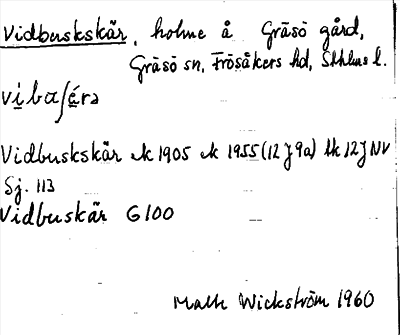 Vidbuskskär, holme å Gräsö gård,
Gräsö sn, Frösåkers hd, Sthlms l.
vibaʃéra
Vidbuskskär ek 1905 ek 1955 (12 J 9a) tk 12 J NV
Sj. 113
Vidbuskär G 100
Math Wickström 1960